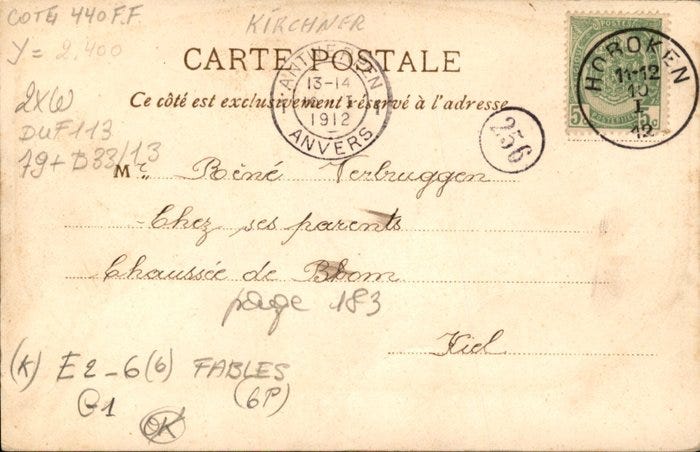 COTE 440 F.F
KIRCHNER
Y = 2.400
CARTE POSTALE
ANTWERPEN
13-14
1912
ANVERS
HOBOKEN
11-12
10
I
12
5c
5c
2XW
DUF113
79+D33/13
Ce côté est exclusivement réservé à l'adresse
256
Mr. Réné Verbruggen
Chez ses parents
Chaussée de Boom
page 183
Kiel
(K) E2-6(6) FABLES
G-1
(6P)
OK